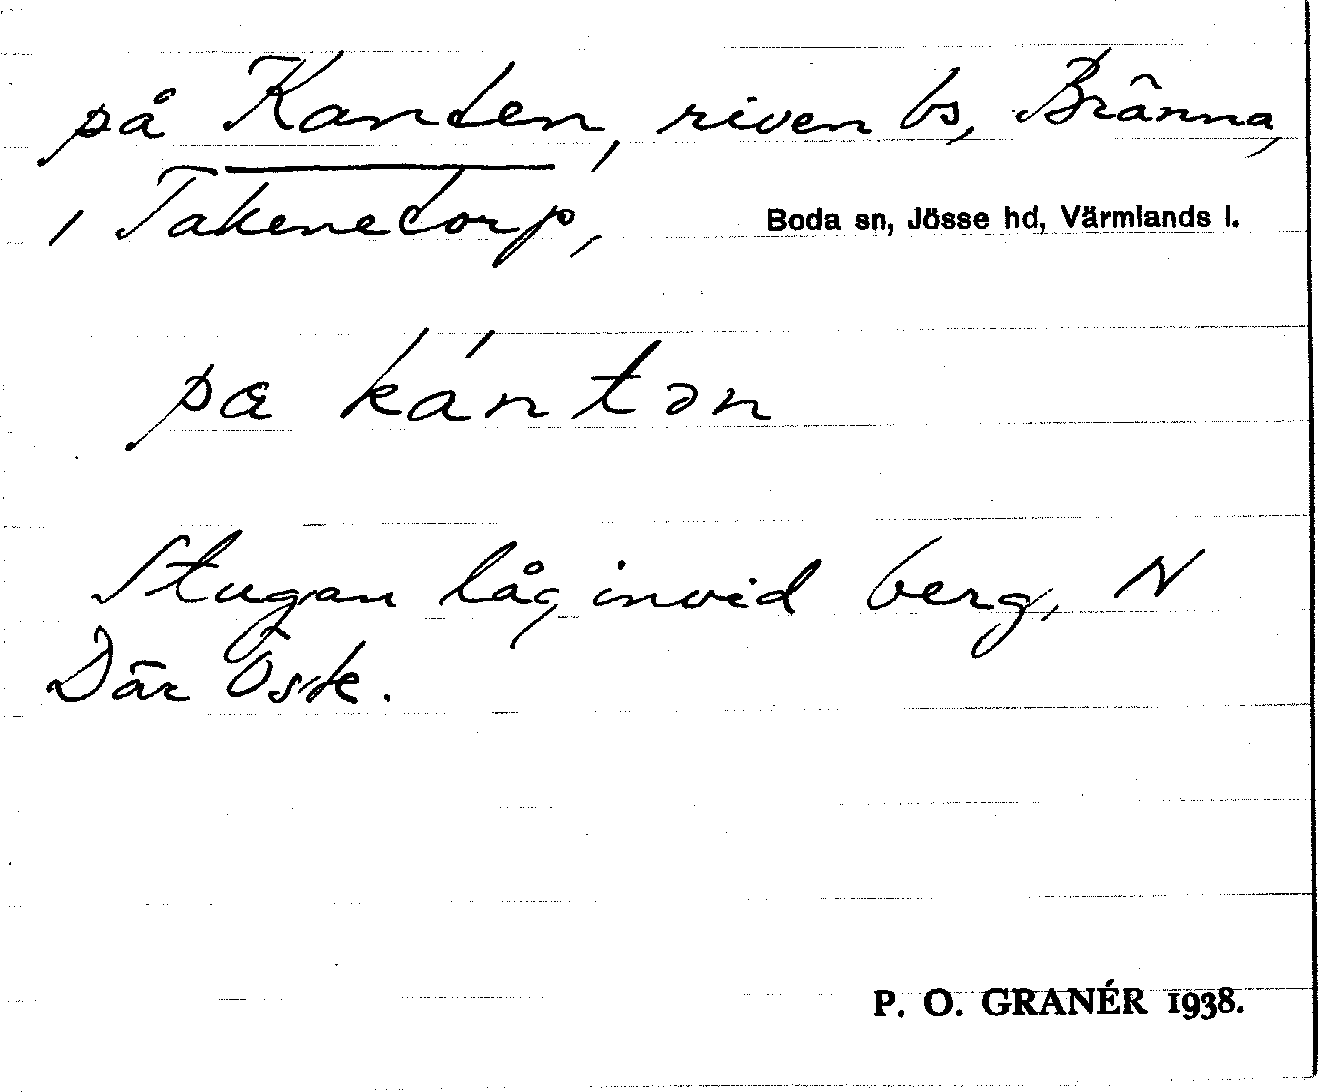 på Kanten, riven bs, Bränna,
i Takenetorp, Boda sn, Jösse hd, Värmlands l.
pæ kántən
Stugan låg invid berg, N
Där Östk.
P. O. GRANÉR 1938.